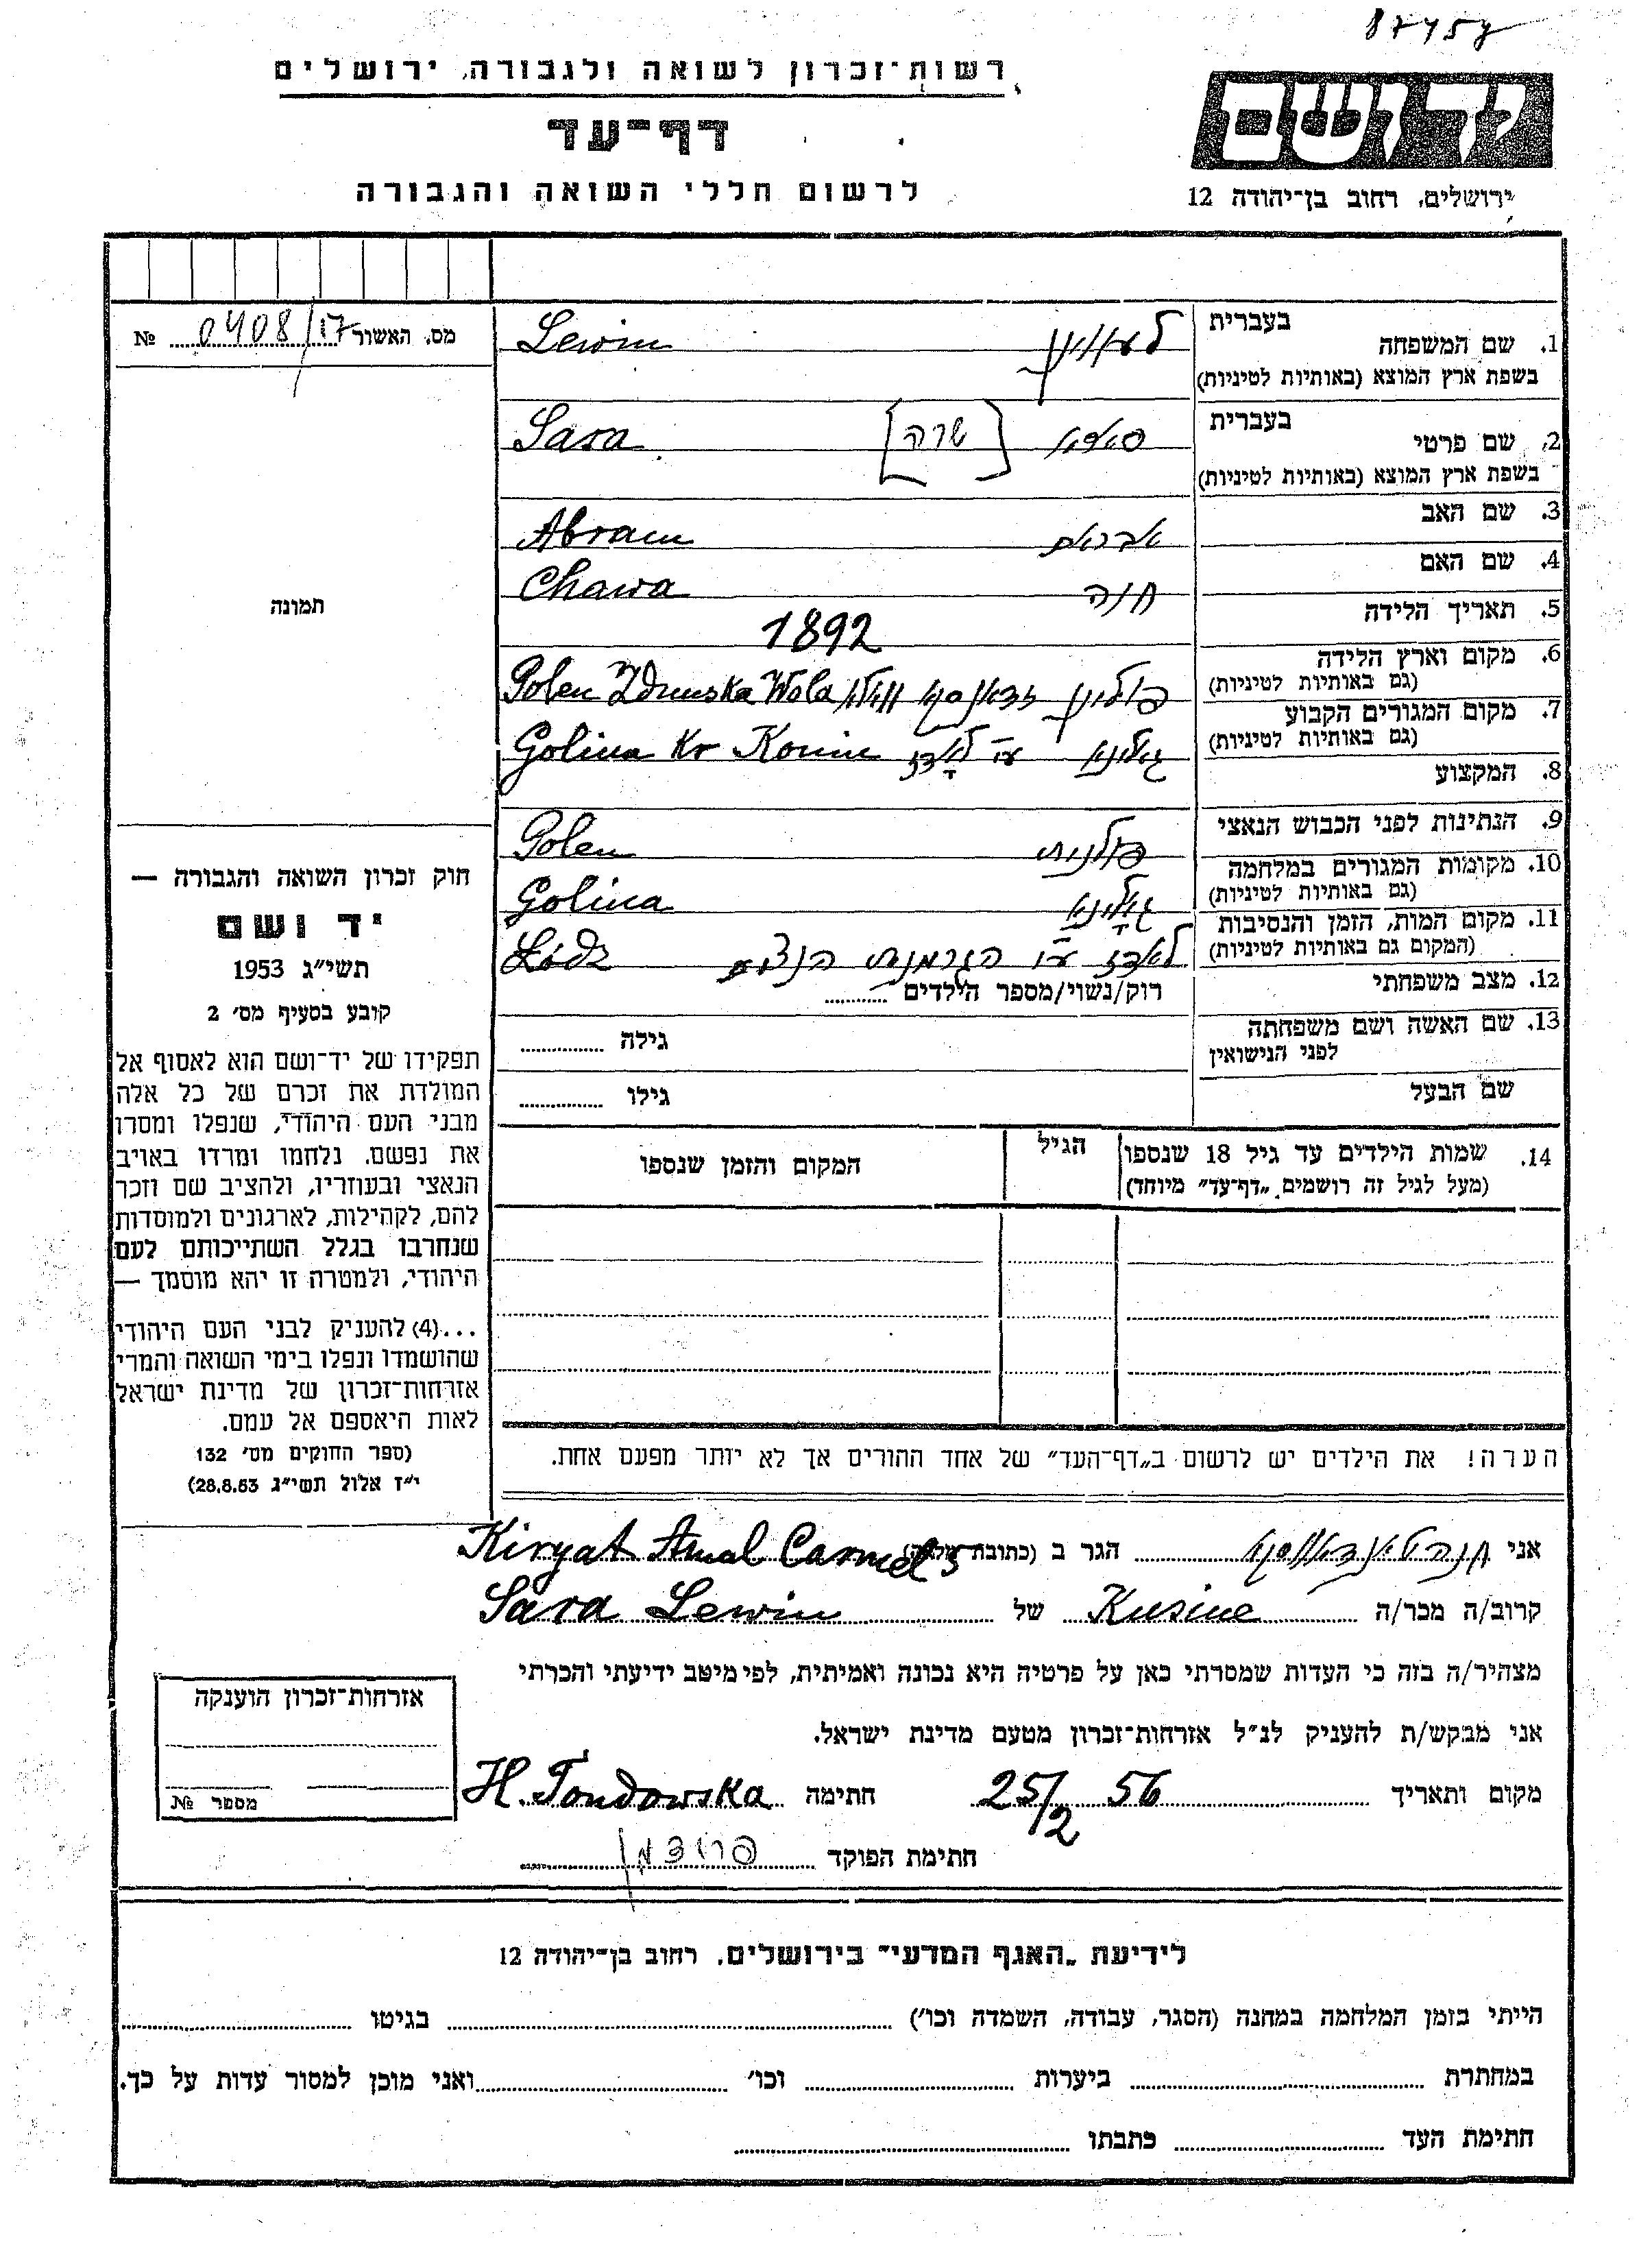 87457
רשות־זכרון לשואה ולגבורה, ירושלים
דף־עד
לרשום חללי השואה והגבורה
יד ושם
ירושלים, רחוב בן־יהודה 12
מס. האשור 0408/17 №
תמונה
חוק זכרון השואה והגבורה —
יד ושם
תשי״ג 1953
קובע בסעיף מס׳ 2
תפקידו של יד־ושם הוא לאסוף אל
המולדת את זכרם של כל אלה
מבני העם היהודי, שנפלו ומסרו
את נפשם, נלחמו ומרדו באויב
הנאצי ובעוזריו, ולהציב שם וזכר
להם, לקהילות, לארגונים ולמוסדות
שנחרבו בגלל השתייכותם לעם
היהודי, ולמטרה זו יהא מוסמך —
...(4) להעניק לבני העם היהודי
שהושמדו ונפלו בימי השואה והמרי
אזרחות־זכרון של מדינת ישראל
לאות היאספם אל עמם.
(ספר החוקים מס׳ 132
י״ז אלול תשי״ג 28.8.53)
בעברית
1. שם המשפחה לעווין Lewin
בשפת ארץ המוצא (באותיות לטיניות)
בעברית
2. שם פרטי סארא [שרה] Sara
בשפת ארץ המוצא (באותיות לטיניות)
3. שם האב אבראם Abram
4. שם האם חוה Chawa
5. תאריך הלידה 1892
6. מקום וארץ הלידה פולין Polen Zdunska Wola
(גם באותיות לטיניות)
7. מקום המגורים הקבוע גולינא ע״י לאדז Golina Kr Konin
(גם באותיות לטיניות)
8. המקצוע
9. הנתינות לפני הכבוש הנאצי פולנית Polen
10. מקומות המגורים במלחמה גאלינא Golina
(גם באותיות לטיניות)
11. מקום המות, הזמן והנסיבות לאדז ע״י הגרמנים Łódz
(המקום גם באותיות לטיניות)
12. מצב משפחתי רוק/נשוי/מספר הילדים
13. שם האשה ושם משפחתה גילה
לפני הנישואין
שם הבעל גילו
14. שמות הילדים עד גיל 18 שנספו הגיל המקום והזמן שנספו
(מעל לגיל זה רושמים „דף־עד״ מיוחד)
הערה! את הילדים יש לרשום ב„דף־העד״ של אחד ההורים אך לא יותר מפעם אחת.
אני חנה הגר ב (כתובת מלאה) Kiryat Amal Carmel 5
קרוב/ה מכר/ה Kusine של Sara Lewin
מצהיר/ה בזה כי העדות שמסרתי כאן על פרטיה היא נכונה ואמיתית, לפי מיטב ידיעתי והכרתי
אני מבקש/ת להעניק לנ״ל אזרחות־זכרון מטעם מדינת ישראל.
מקום ותאריך 25/2 56 חתימה H. Tondowska
חתימת הפוקד
אזרחות־זכרון הוענקה
מספר №
לידיעת „האגף המדעי״ בירושלים, רחוב בן־יהודה 12
הייתי בזמן המלחמה במחנה (הסגר, עבודה, השמדה וכו׳) בגיטו
במחתרת ביערות וכו׳ ואני מוכן למסור עדות על כך.
חתימת העד כתבתו